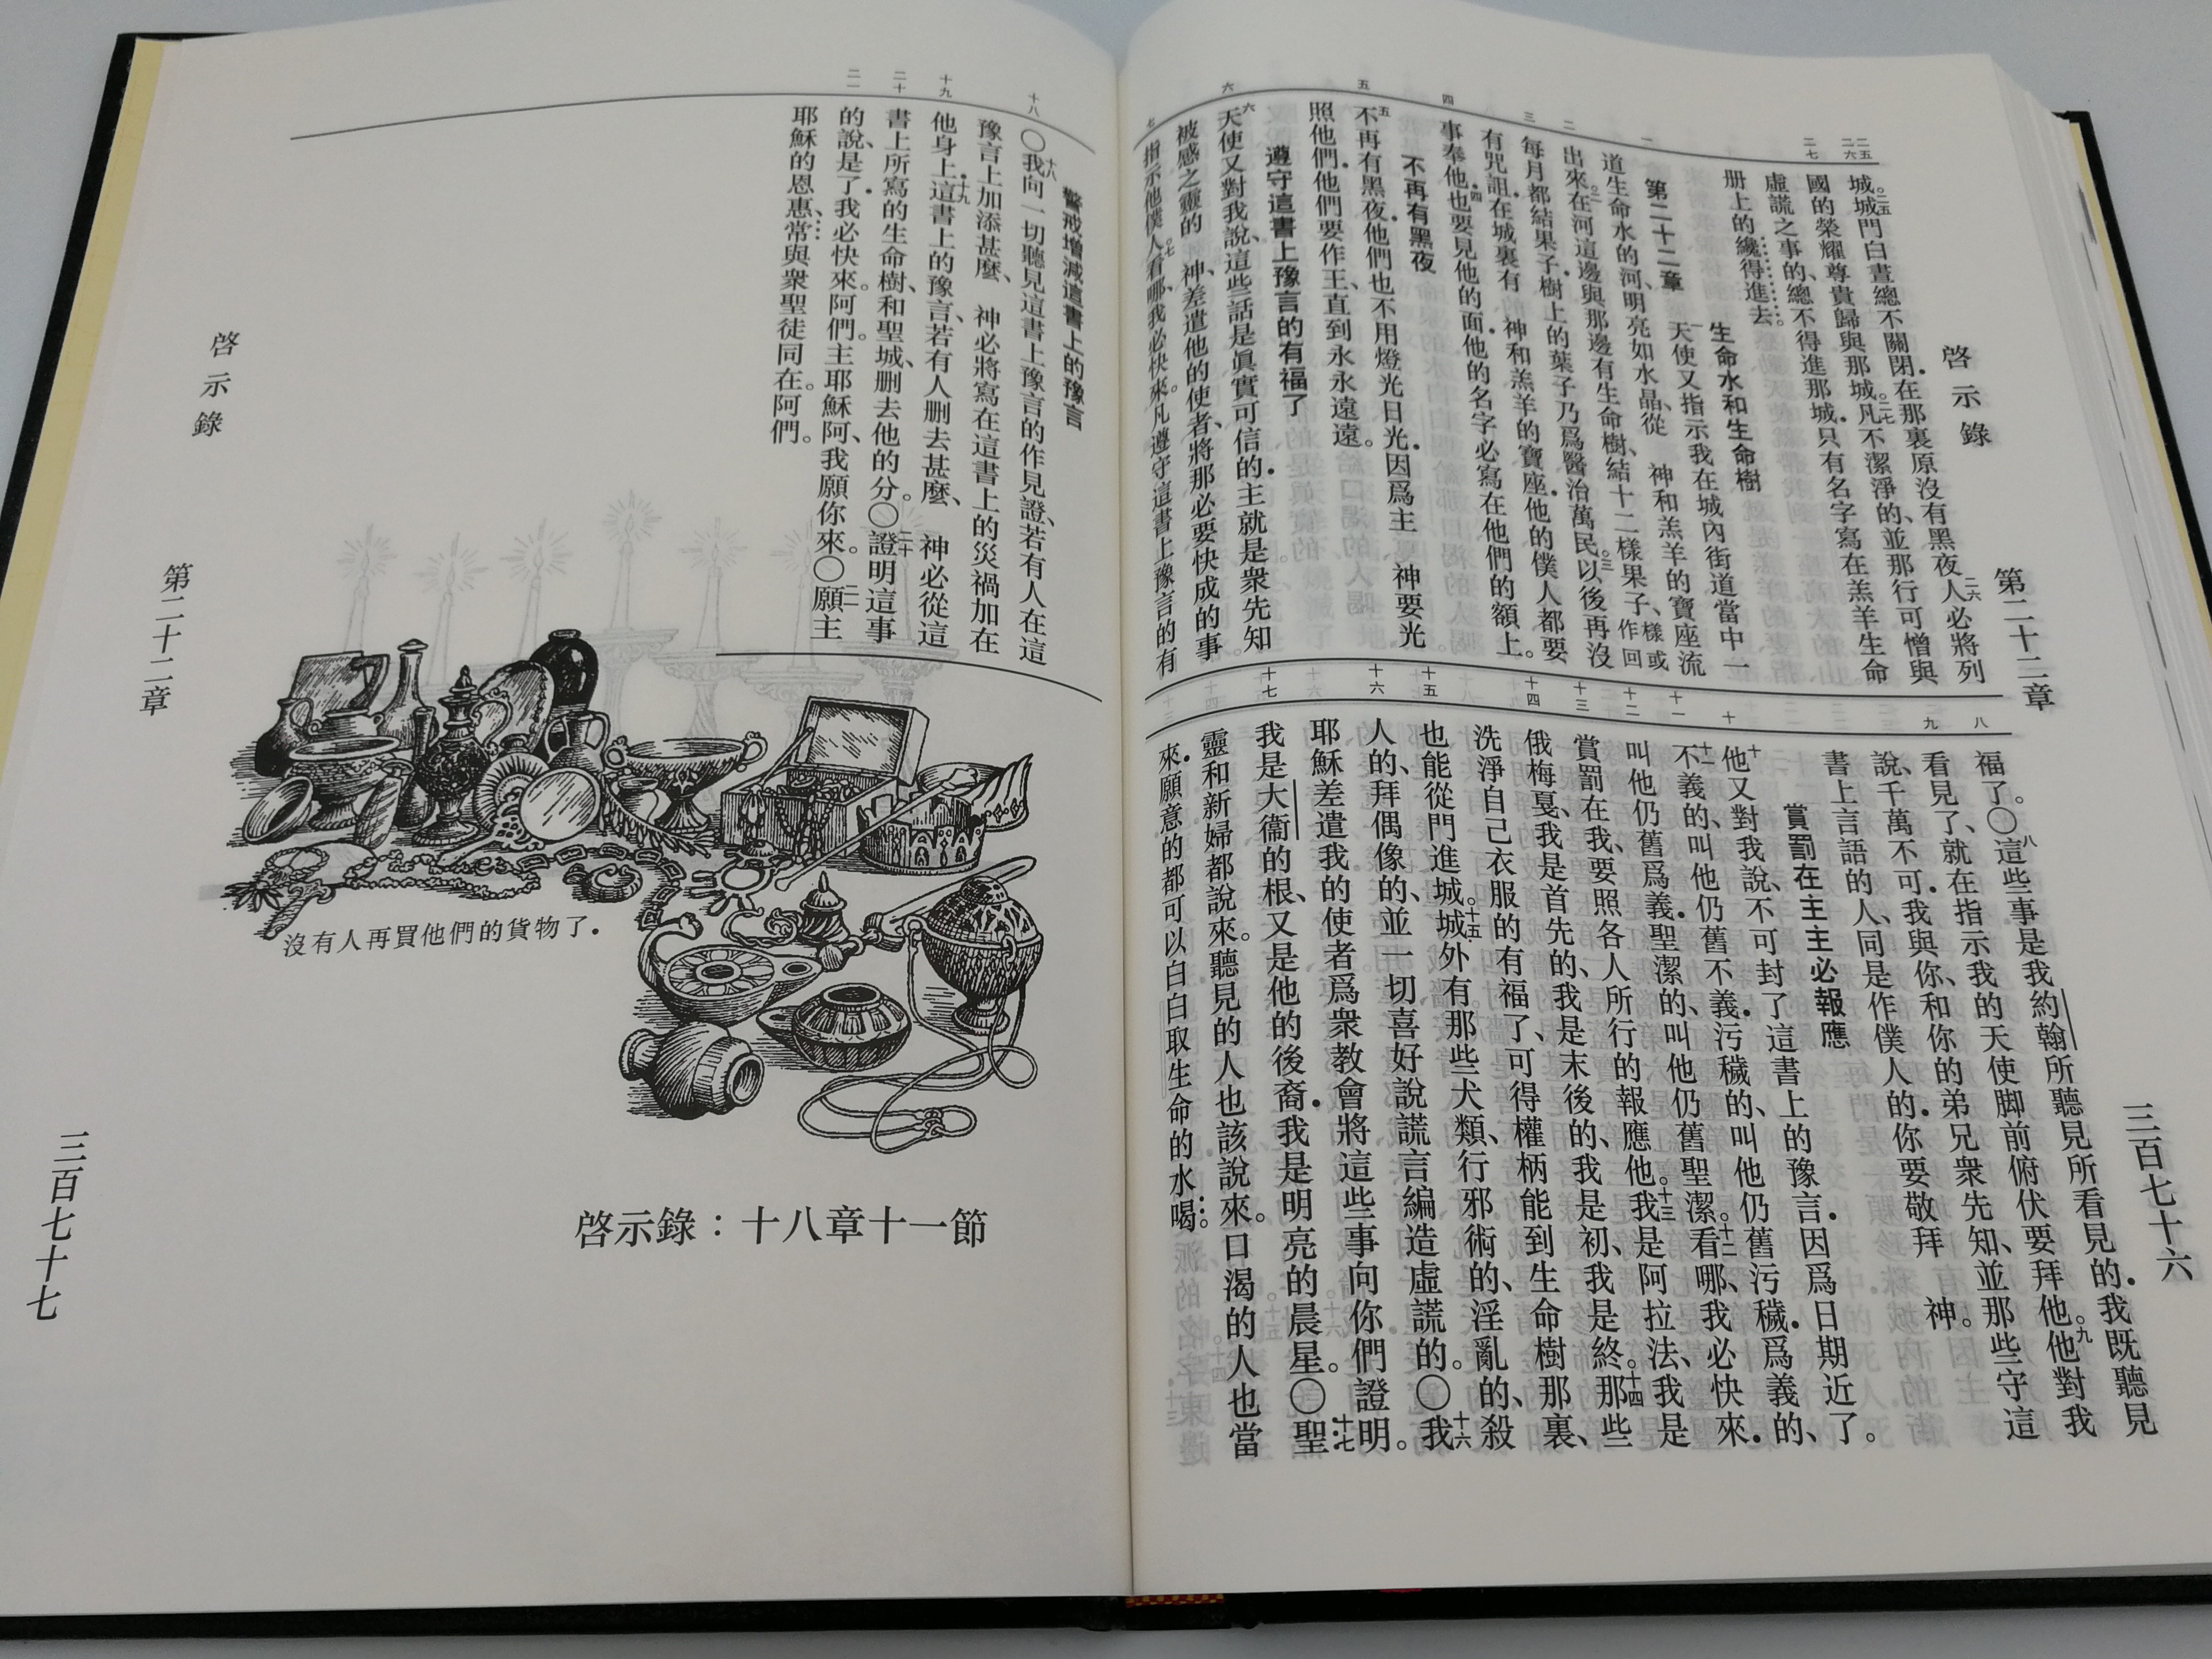 啓示錄 第二十二章 三百七十六
二五 二六 二七 一 二 三 四 五 六 七
城。二五城門白晝總不關閉．在那裏原沒有黑夜二六人必將列
國的榮耀尊貴歸與那城。二七凡不潔淨的、並那行可憎與
虛謊之事的、總不得進那城．只有名字寫在羔羊生命
册上的纔得進去。
生命水和生命樹
第二十二章　一天使又指示我在城內街道當中一
道生命水的河、明亮如水晶、從　神和羔羊的寶座流
出來。二在河這邊與那邊有生命樹、結十二樣果子、樣或作回
每月都結果子．樹上的葉子乃爲醫治萬民。三以後再沒
有咒詛．在城裏有　神和羔羊的寶座．他的僕人都要
事奉他．四也要見他的面．他的名字必寫在他們的額上。
不再有黑夜
五不再有黑夜．他們也不用燈光日光．因爲主　神要光
照他們．他們要作王、直到永永遠遠。
遵守這書上豫言的有福了
六天使又對我說、這些話是眞實可信的．主就是衆先知
被感之靈的　神、差遣他的使者、將那必要快成的事
指示他僕人。七看哪、我必快來。凡遵守這書上豫言的有
八 九 十 十一 十二 十三 十四 十五 十六 十七
福了。〇八這些事是我約翰所聽見所看見的．我既聽見
看見了、就在指示我的天使脚前俯伏要拜他。九他對我
說、千萬不可．我與你、和你的弟兄衆先知、並那些守這
書上言語的人、同是作僕人的．你要敬拜　神。
賞罰在主主必報應
十他又對我說、不可封了這書上的豫言．因爲日期近了。
十一不義的、叫他仍舊不義．污穢的、叫他仍舊污穢．爲義的、
叫他仍舊爲義．聖潔的、叫他仍舊聖潔。十二看哪、我必快來．
賞罰在我、要照各人所行的報應他。十三我是阿拉法、我是
俄梅戛、我是首先的、我是末後的、我是初、我是終。十四那些
洗淨自己衣服的有福了、可得權柄能到生命樹那裏、
也能從門進城。十五城外有那些犬類、行邪術的、淫亂的、殺
人的、拜偶像的、並一切喜好說謊言編造虛謊的。〇十六我
耶穌差遣我的使者爲衆教會將這些事向你們證明。
我是大衞的根、又是他的後裔．我是明亮的晨星。〇十七聖
靈和新婦都說來。聽見的人也該說來。口渴的人也當
來．願意的都可以白白取生命的水喝。
十八 十九 二十 二一
警戒增減這書上的豫言
〇十八我向一切聽見這書上豫言的作見證、若有人在這
豫言上加添甚麼、　神必將寫在這書上的災禍加在
他身上．十九這書上的豫言、若有人删去甚麼、　神必從這
書上所寫的生命樹、和聖城、删去他的分。〇二十證明這事
的說、是了．我必快來。阿們。主耶穌阿、我願你來。〇二一願主
耶穌的恩惠、常與衆聖徒同在。阿們。
沒有人再買他們的貨物了．
啓示錄：十八章十一節
啓示錄 第二十二章 三百七十七